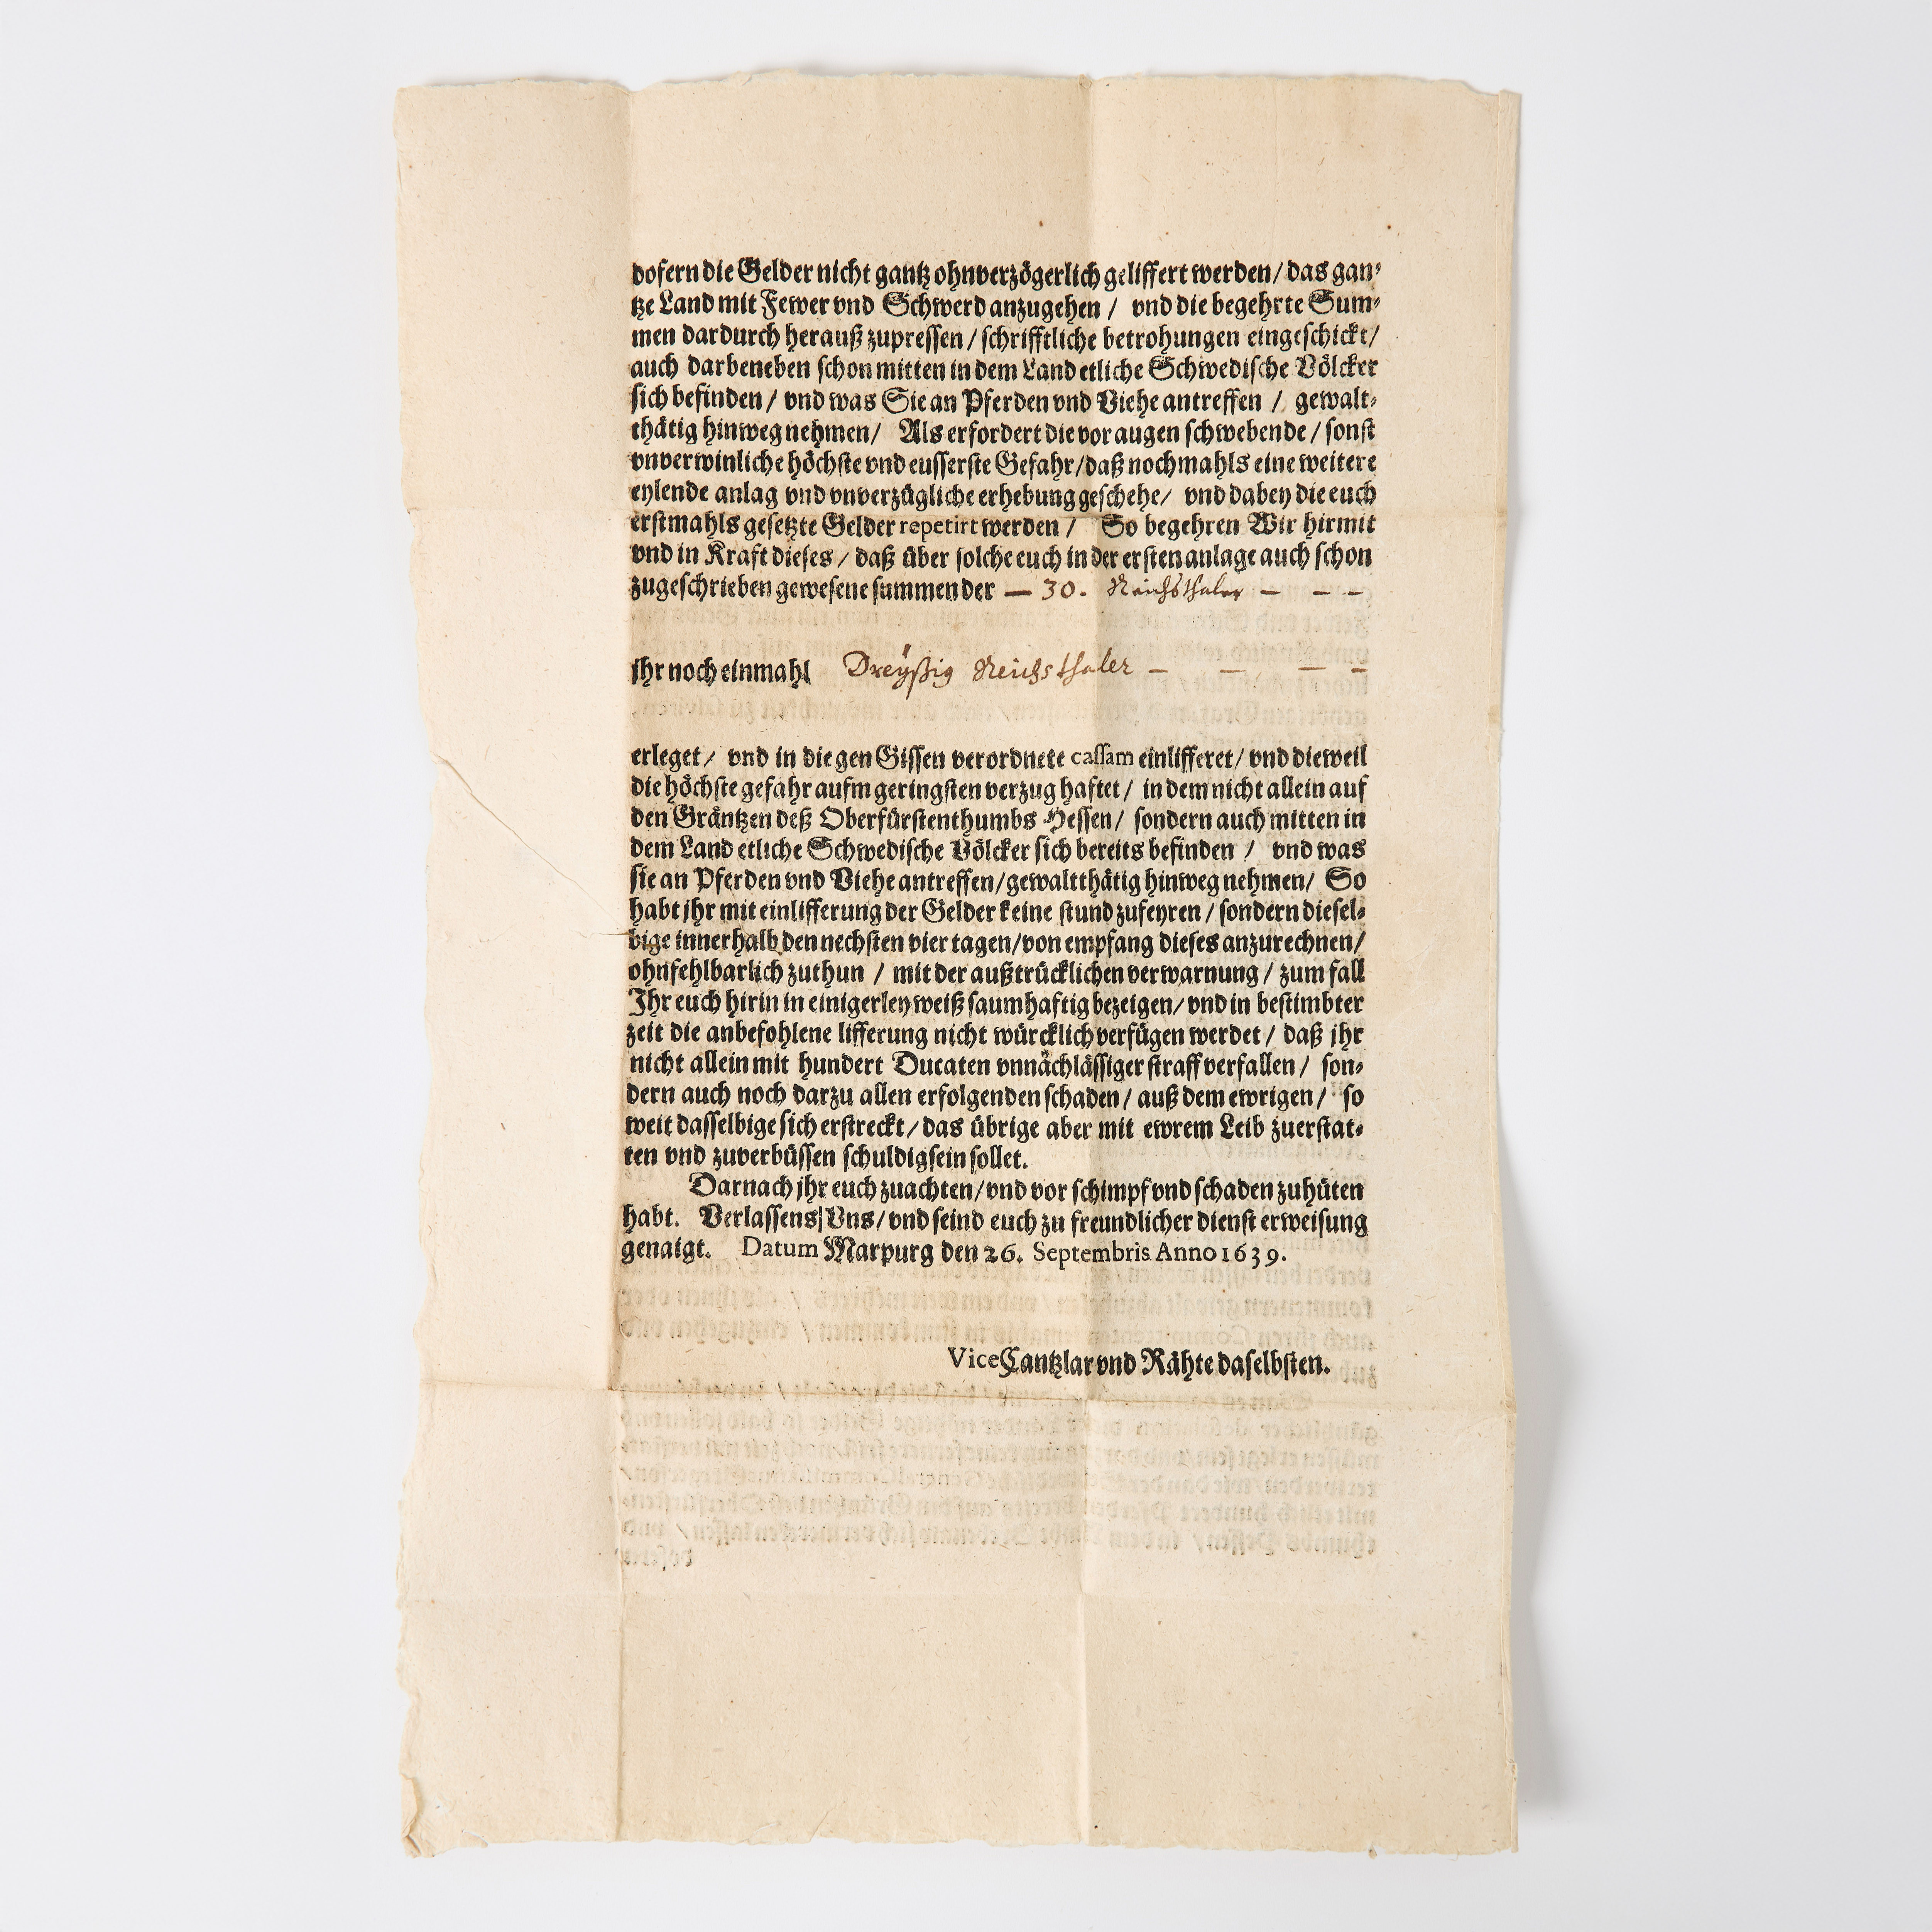 dofern die Gelder nicht gantz ohnverzögerlich geliffert werden / das gan-
tze Land mit Fewer vnd Schwerd anzugehen / vnd die begehrte Sum-
men dardurch herauß zupressen / schrifftliche betrohungen eingeschickt /
auch darbeneben schon mitten in dem Land etliche Schwedische Völcker
sich befinden / vnd was Sie an Pferden vnd Viehe antreffen / gewalt-
thätig hinweg nehmen / Als erfordert die vor augen schwebende / sonst
vnverwinliche höchste vnd eusserste Gefahr / daß nochmahls eine weitere
eylende anlag vnd vnverzügliche erhebung geschehe / vnd dabey die euch
erstmahls gesetzte Gelder repetirt werden / So begehren Wir hirmit
vnd in Kraft dieses / daß über solche euch in der ersten anlage auch schon
zugeschrieben gewesene summen der — 30. Reichsthaler — — —
jhr noch einmahl Dreÿßig Reichsthaler — — — —
erleget / vnd in die gen Gissen verordnete cassam einlifferet / vnd dieweil
die höchste gefahr aufm geringsten verzug haftet / in dem nicht allein auf
den Gräntzen deß Oberfürstenthumbs Hessen / sondern auch mitten in
dem Land etliche Schwedische Völcker sich bereits befinden / vnd was
sie an Pferden vnd Viehe antreffen / gewaltthätig hinweg nehmen / So
habt jhr mit einlifferung der Gelder keine stund zufeyren / sondern diesel-
bige innerhalb den nechsten vier tagen / von empfang dieses anzurechnen /
ohnfehlbarlich zuthun / mit der außtrücklichen verwarnung / zum fall
Jhr euch hirin in einigerley weiß saumhaftig bezeigen / vnd in bestimbter
zeit die anbefohlene lifferung nicht würcklich verfügen werdet / daß jhr
nicht allein mit hundert Ducaten vnnächlässiger straff verfallen / son-
dern auch noch darzu allen erfolgenden schaden / auß dem ewrigen / so
weit dasselbige sich erstreckt / das übrige aber mit ewrem Leib zuerstat-
ten vnd zuverbüssen schuldig sein sollet.
Darnach jhr euch zuachten / vnd vor schimpf vnd schaden zuhüten
habt. Verlassens Vns / vnd seind euch zu freundlicher dienst erweisung
genaigt. Datum Marpurg den 26. Septembris Anno 1639.
Vice Cantzlar vnd Rähte daselbsten.